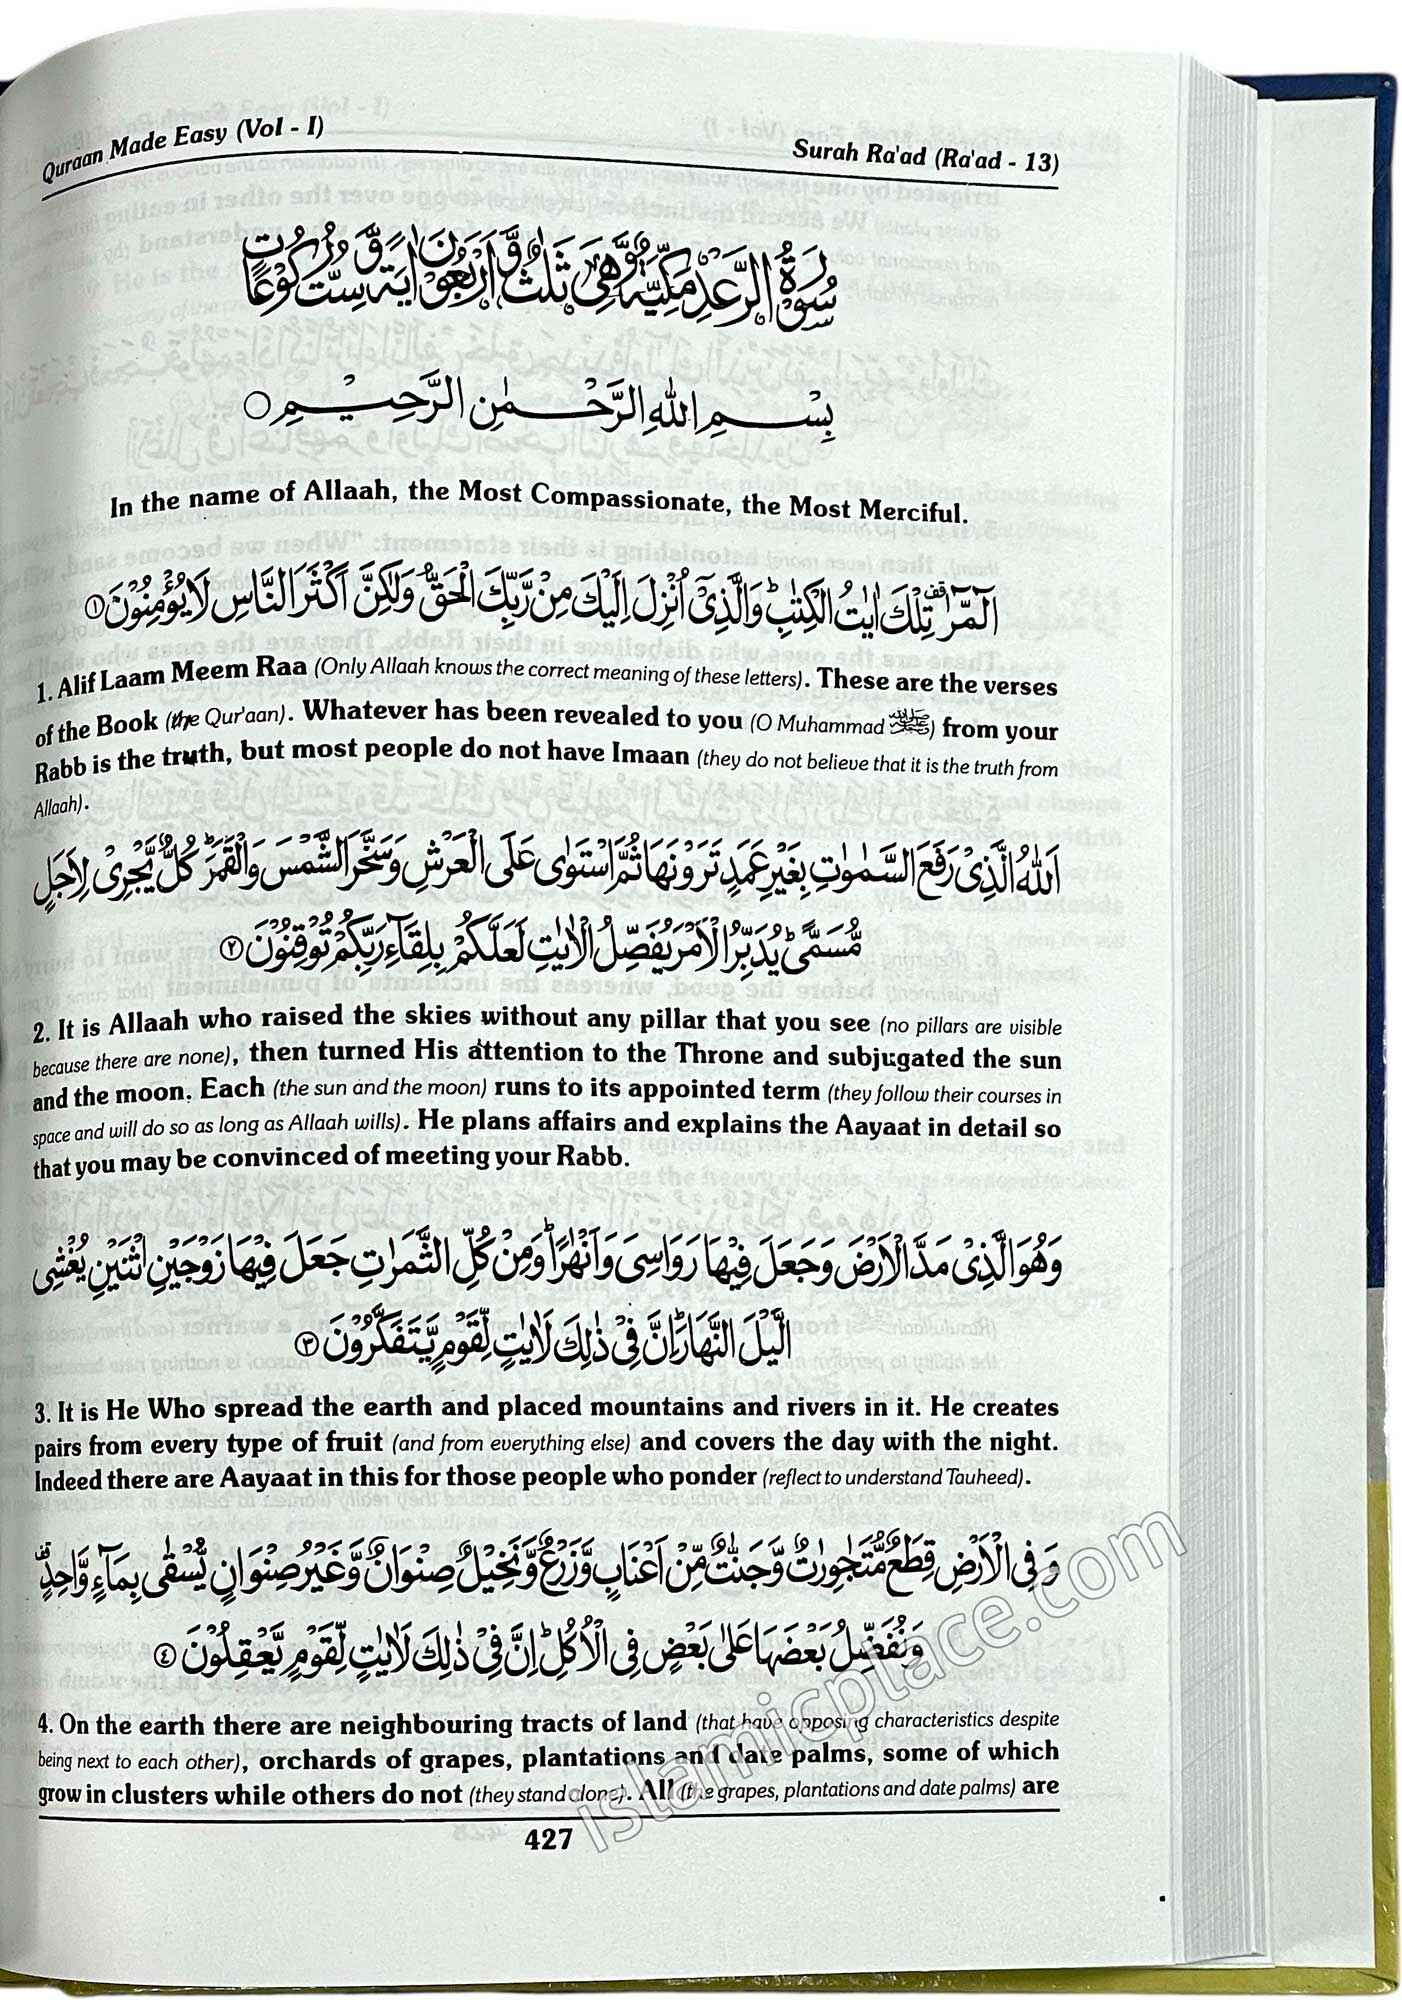 Quraan Made Easy (Vol - I)
Surah Ra'ad (Ra'ad - 13)
سُوْرَةُ الرَّعْدِ مَكِّيَّةٌ وَّهِيَ ثَلٰثٌ وَّاَرْبَعُوْنَ اٰيَةً وَّسِتُّ رُكُوْعَاتٍ
بِسْمِ اللّٰهِ الرَّحْمٰنِ الرَّحِيْمِ ○
In the name of Allaah, the Most Compassionate, the Most Merciful.
الٓمّٓرٰ ۫ تِلْكَ اٰيٰتُ الْكِتٰبِ ؕ وَالَّذِيْٓ اُنْزِلَ اِلَيْكَ مِنْ رَّبِّكَ الْحَقُّ وَلٰكِنَّ اَكْثَرَ النَّاسِ لَا يُؤْمِنُوْنَ ①
1. Alif Laam Meem Raa (Only Allaah knows the correct meaning of these letters). These are the verses
of the Book (the Qur'aan). Whatever has been revealed to you (O Muhammad ﷺ) from your
Rabb is the truth, but most people do not have Imaan (they do not believe that it is the truth from
Allaah).
اَللّٰهُ الَّذِيْ رَفَعَ السَّمٰوٰتِ بِغَيْرِ عَمَدٍ تَرَوْنَهَا ثُمَّ اسْتَوٰى عَلَى الْعَرْشِ وَسَخَّرَ الشَّمْسَ وَالْقَمَرَ ؕ كُلٌّ يَّجْرِيْ لِاَجَلٍ
مُّسَمًّى ؕ يُدَبِّرُ الْاَمْرَ يُفَصِّلُ الْاٰيٰتِ لَعَلَّكُمْ بِلِقَآءِ رَبِّكُمْ تُوْقِنُوْنَ ②
2. It is Allaah who raised the skies without any pillar that you see (no pillars are visible
because there are none), then turned His attention to the Throne and subjugated the sun
and the moon. Each (the sun and the moon) runs to its appointed term (they follow their courses in
space and will do so as long as Allaah wills). He plans affairs and explains the Aayaat in detail so
that you may be convinced of meeting your Rabb.
وَهُوَ الَّذِيْ مَدَّ الْاَرْضَ وَجَعَلَ فِيْهَا رَوَاسِيَ وَاَنْهٰرًا ؕ وَمِنْ كُلِّ الثَّمَرٰتِ جَعَلَ فِيْهَا زَوْجَيْنِ اثْنَيْنِ يُغْشِي
الَّيْلَ النَّهَارَ ؕ اِنَّ فِيْ ذٰلِكَ لَاٰيٰتٍ لِّقَوْمٍ يَّتَفَكَّرُوْنَ ③
3. It is He Who spread the earth and placed mountains and rivers in it. He creates
pairs from every type of fruit (and from everything else) and covers the day with the night.
Indeed there are Aayaat in this for those people who ponder (reflect to understand Tauheed).
وَفِي الْاَرْضِ قِطَعٌ مُّتَجٰوِرٰتٌ وَّجَنّٰتٌ مِّنْ اَعْنَابٍ وَّزَرْعٌ وَّنَخِيْلٌ صِنْوَانٌ وَّغَيْرُ صِنْوَانٍ يُّسْقٰى بِمَآءٍ وَّاحِدٍ ۫
وَنُفَضِّلُ بَعْضَهَا عَلٰى بَعْضٍ فِي الْاُكُلِ ؕ اِنَّ فِيْ ذٰلِكَ لَاٰيٰتٍ لِّقَوْمٍ يَّعْقِلُوْنَ ④
4. On the earth there are neighbouring tracts of land (that have opposing characteristics despite
being next to each other), orchards of grapes, plantations and date palms, some of which
grow in clusters while others do not (they stand alone). All (the grapes, plantations and date palms) are
427
islamicplace.com